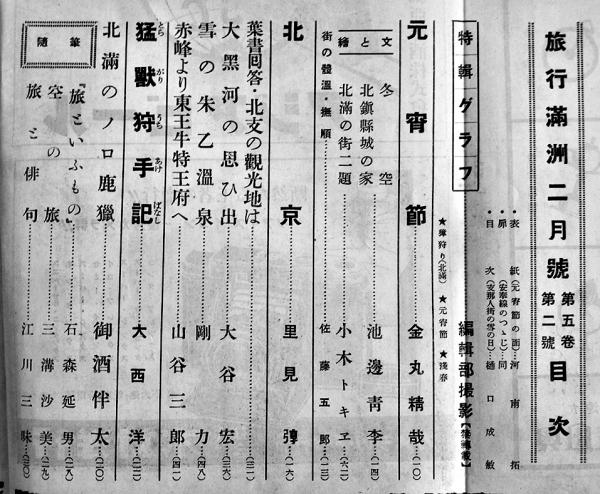 旅行滿洲二月號 第五卷 第二號 目次
・表紙(元宵節の面)…河南拓
・扉(安奉線のつゝじ)…同
・目次(支那人街の雪の日)…樋口成敏
特輯グラフ 編輯部撮影【禁轉載】
★獐狩り(北滿) ★元宵節 ★淺春
元宵節……金丸精哉…(一〇)
文と繪
冬空……池邊青李…(一四)
北鎭縣城の家
北滿の街二題……小木トキヱ…(六二)
街の體溫・撫順……佐藤五郎…(一三)
北京……里見弴…(一六)
葉書回答・北支の觀光地は……(三一)
大黑河の思ひ出……大谷宏…(三六)
雪の朱乙溫泉……剛力…(四八)
赤峰より東王牛特王府へ……山谷三郎…(四一)
猛獸狩手記……大西洋…(三二)
とらがりうちあけばなし
北滿のノロ鹿獵……御酒伴太…(三〇)
隨筆
『旅といふもの』……石森延男…(二八)
空の旅……三溝沙美…(二九)
旅と俳句……江川三昧…(三〇)